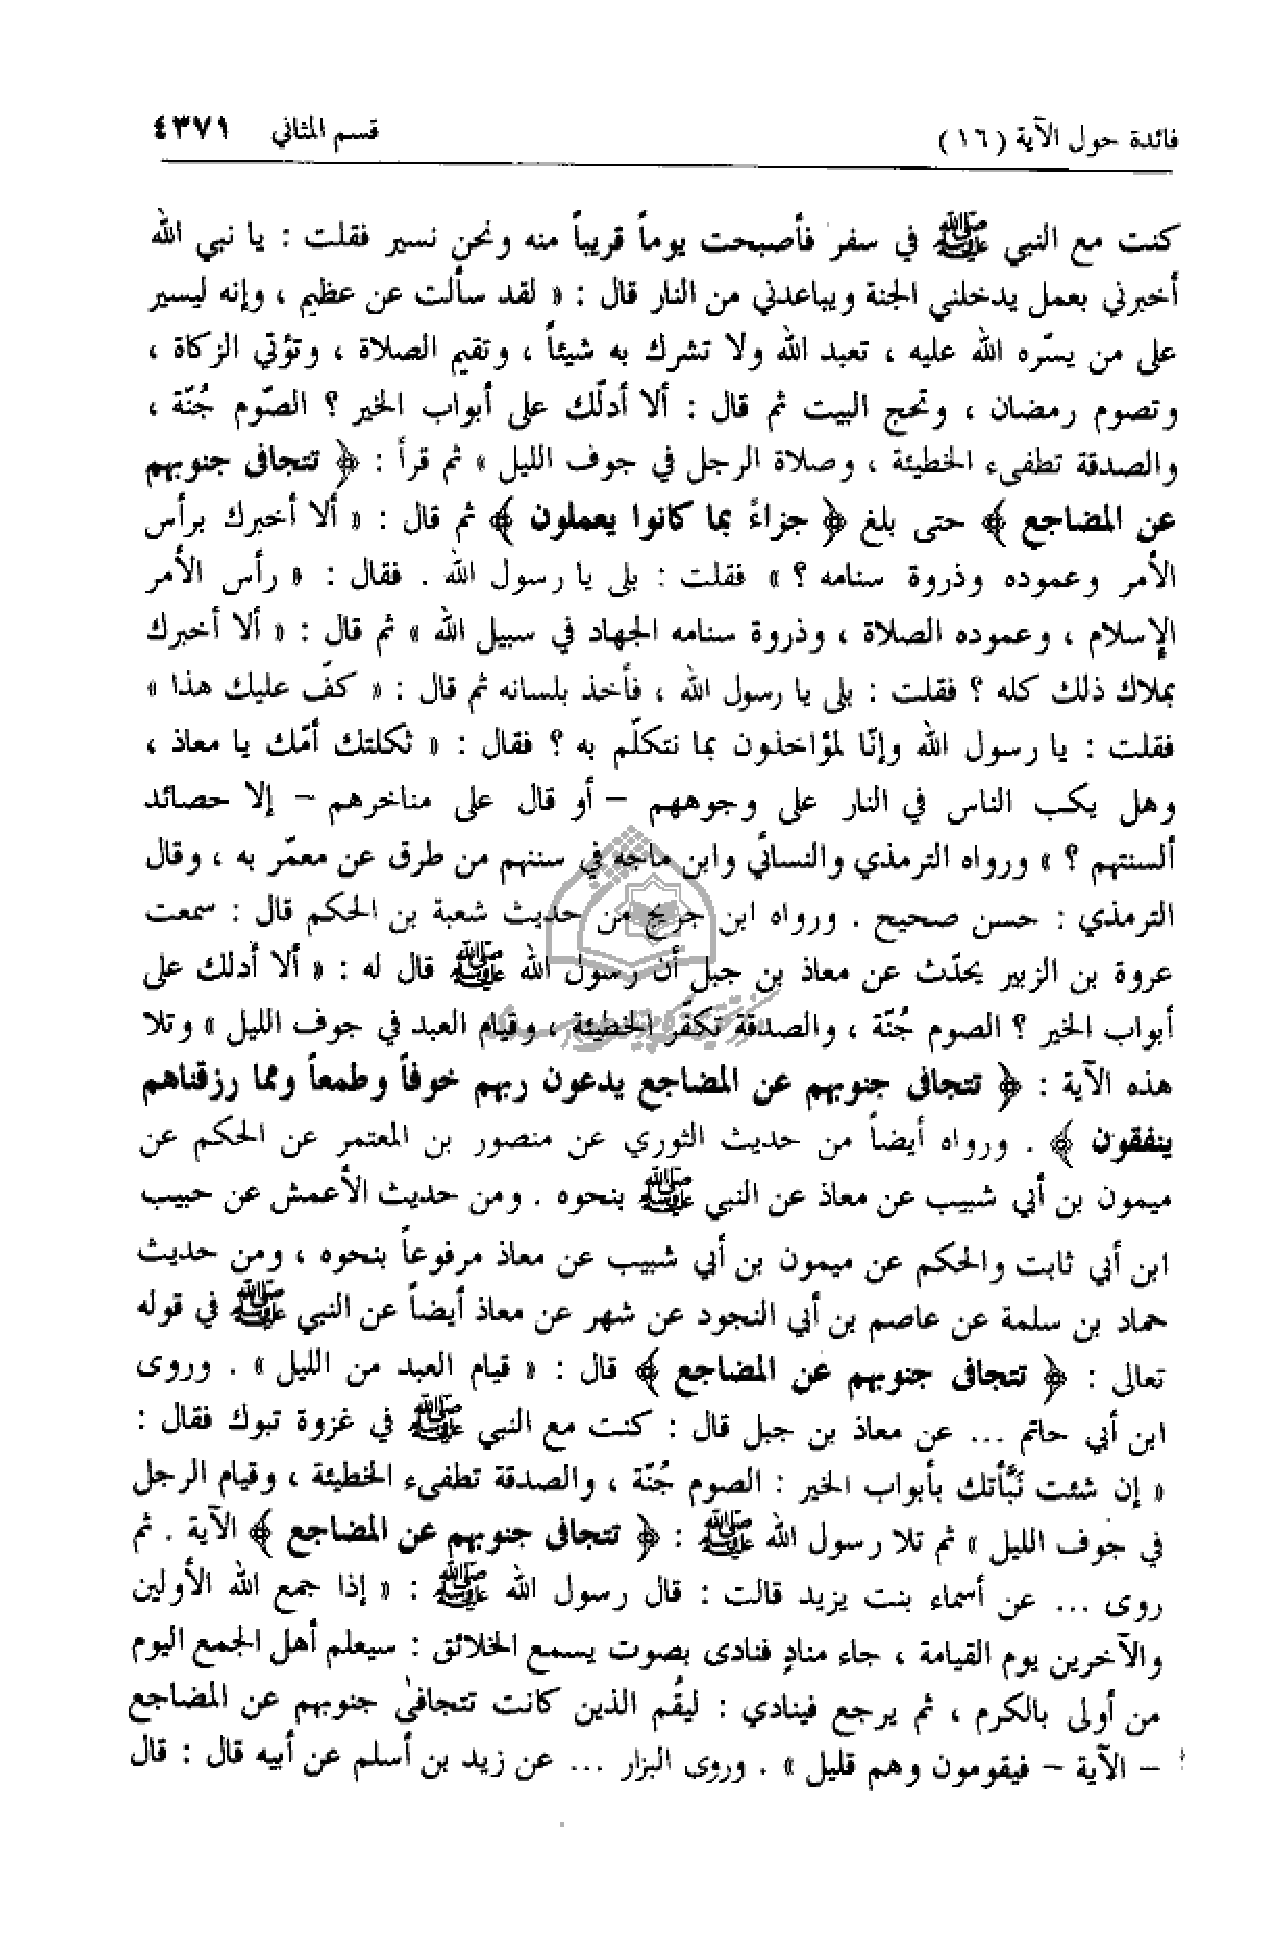 فائدة حول الآية (١٦) قسم المثاني ٤٣٧١
كنت مع النبي ﷺ في سفر فأصبحت يوماً قريباً منه ونحن نسير فقلت : يا نبي الله
أخبرني بعمل يدخلني الجنة ويباعدني من النار قال : « لقد سألت عن عظيم ، وإنه ليسير
على من يسّره الله عليه ، تعبد الله ولا تشرك به شيئاً ، وتقيم الصلاة ، وتؤتي الزكاة ،
وتصوم رمضان ، وتحج البيت ثم قال : ألا أدلّك على أبواب الخير ؟ الصّوم جُنّة ،
والصدقة تطفىء الخطيئة ، وصلاة الرجل في جوف الليل » ثم قرأ : ﴿ تتجافى جنوبهم
عن المضاجع ﴾ حتى بلغ ﴿ جزاءً بما كانوا يعملون ﴾ ثم قال : « ألا أخبرك برأس
الأمر وعموده وذروة سنامه ؟ » فقلت : بلى يا رسول الله . فقال : « رأس الأمر
الإسلام ، وعموده الصلاة ، وذروة سنامه الجهاد في سبيل الله » ثم قال : « ألا أخبرك
بملاك ذلك كله ؟ فقلت : بلى يا رسول الله ، فأخذ بلسانه ثم قال : « كفّ عليك هذا »
فقلت : يا رسول الله وإنّا لمؤاخذون بما نتكلّم به ؟ فقال : « ثكلتك أمّك يا معاذ ،
وهل يكب الناس في النار على وجوههم – أو قال على مناخرهم – إلا حصائد
ألسنتهم ؟ » ورواه الترمذي والنسائي وابن ماجه في سننهم من طرق عن معمّر به ، وقال
الترمذي : حسن صحيح . ورواه ابن جريج من حديث شعبة بن الحكم قال : سمعت
عروة بن الزبير يحدّث عن معاذ بن جبل أن رسول الله ﷺ قال له : « ألا أدلك على
أبواب الخير ؟ الصوم جُنّة ، والصدقة تكفّر الخطيئة ، وقيام العبد في جوف الليل » وتلا
هذه الآية : ﴿ تتجافى جنوبهم عن المضاجع يدعون ربهم خوفاً وطمعاً ومما رزقناهم
ينفقون ﴾ . ورواه أيضاً من حديث الثوري عن منصور بن المعتمر عن الحكم عن
ميمون بن أبي شبيب عن معاذ عن النبي ﷺ بنحوه . ومن حديث الأعمش عن حبيب
ابن أبي ثابت والحكم عن ميمون بن أبي شبيب عن معاذ مرفوعاً بنحوه ، ومن حديث
حماد بن سلمة عن عاصم بن أبي النجود عن شهر عن معاذ أيضاً عن النبي ﷺ في قوله
تعالى : ﴿ تتجافى جنوبهم عن المضاجع ﴾ قال : « قيام العبد من الليل » . وروى
ابن أبي حاتم ... عن معاذ بن جبل قال : كنت مع النبي ﷺ في غزوة تبوك فقال :
« إن شئت نَبَّأتك بأبواب الخير : الصوم جُنّة ، والصدقة تطفىء الخطيئة ، وقيام الرجل
في جوف الليل » ثم تلا رسول الله ﷺ : ﴿ تتجافى جنوبهم عن المضاجع ﴾ الآية . ثم
روى ... عن أسماء بنت يزيد قالت : قال رسول الله ﷺ : « إذا جمع الله الأولين
والآخرين يوم القيامة ، جاء منادٍ فنادى بصوت يسمع الخلائق : سيعلم أهل الجمع اليوم
من أولى بالكرم ، ثم يرجع فينادي : ليقُم الذين كانت تتجافىٰ جنوبهم عن المضاجع
– الآية – فيقومون وهم قليل » . وروى البزار ... عن زيد بن أسلم عن أبيه قال : قال